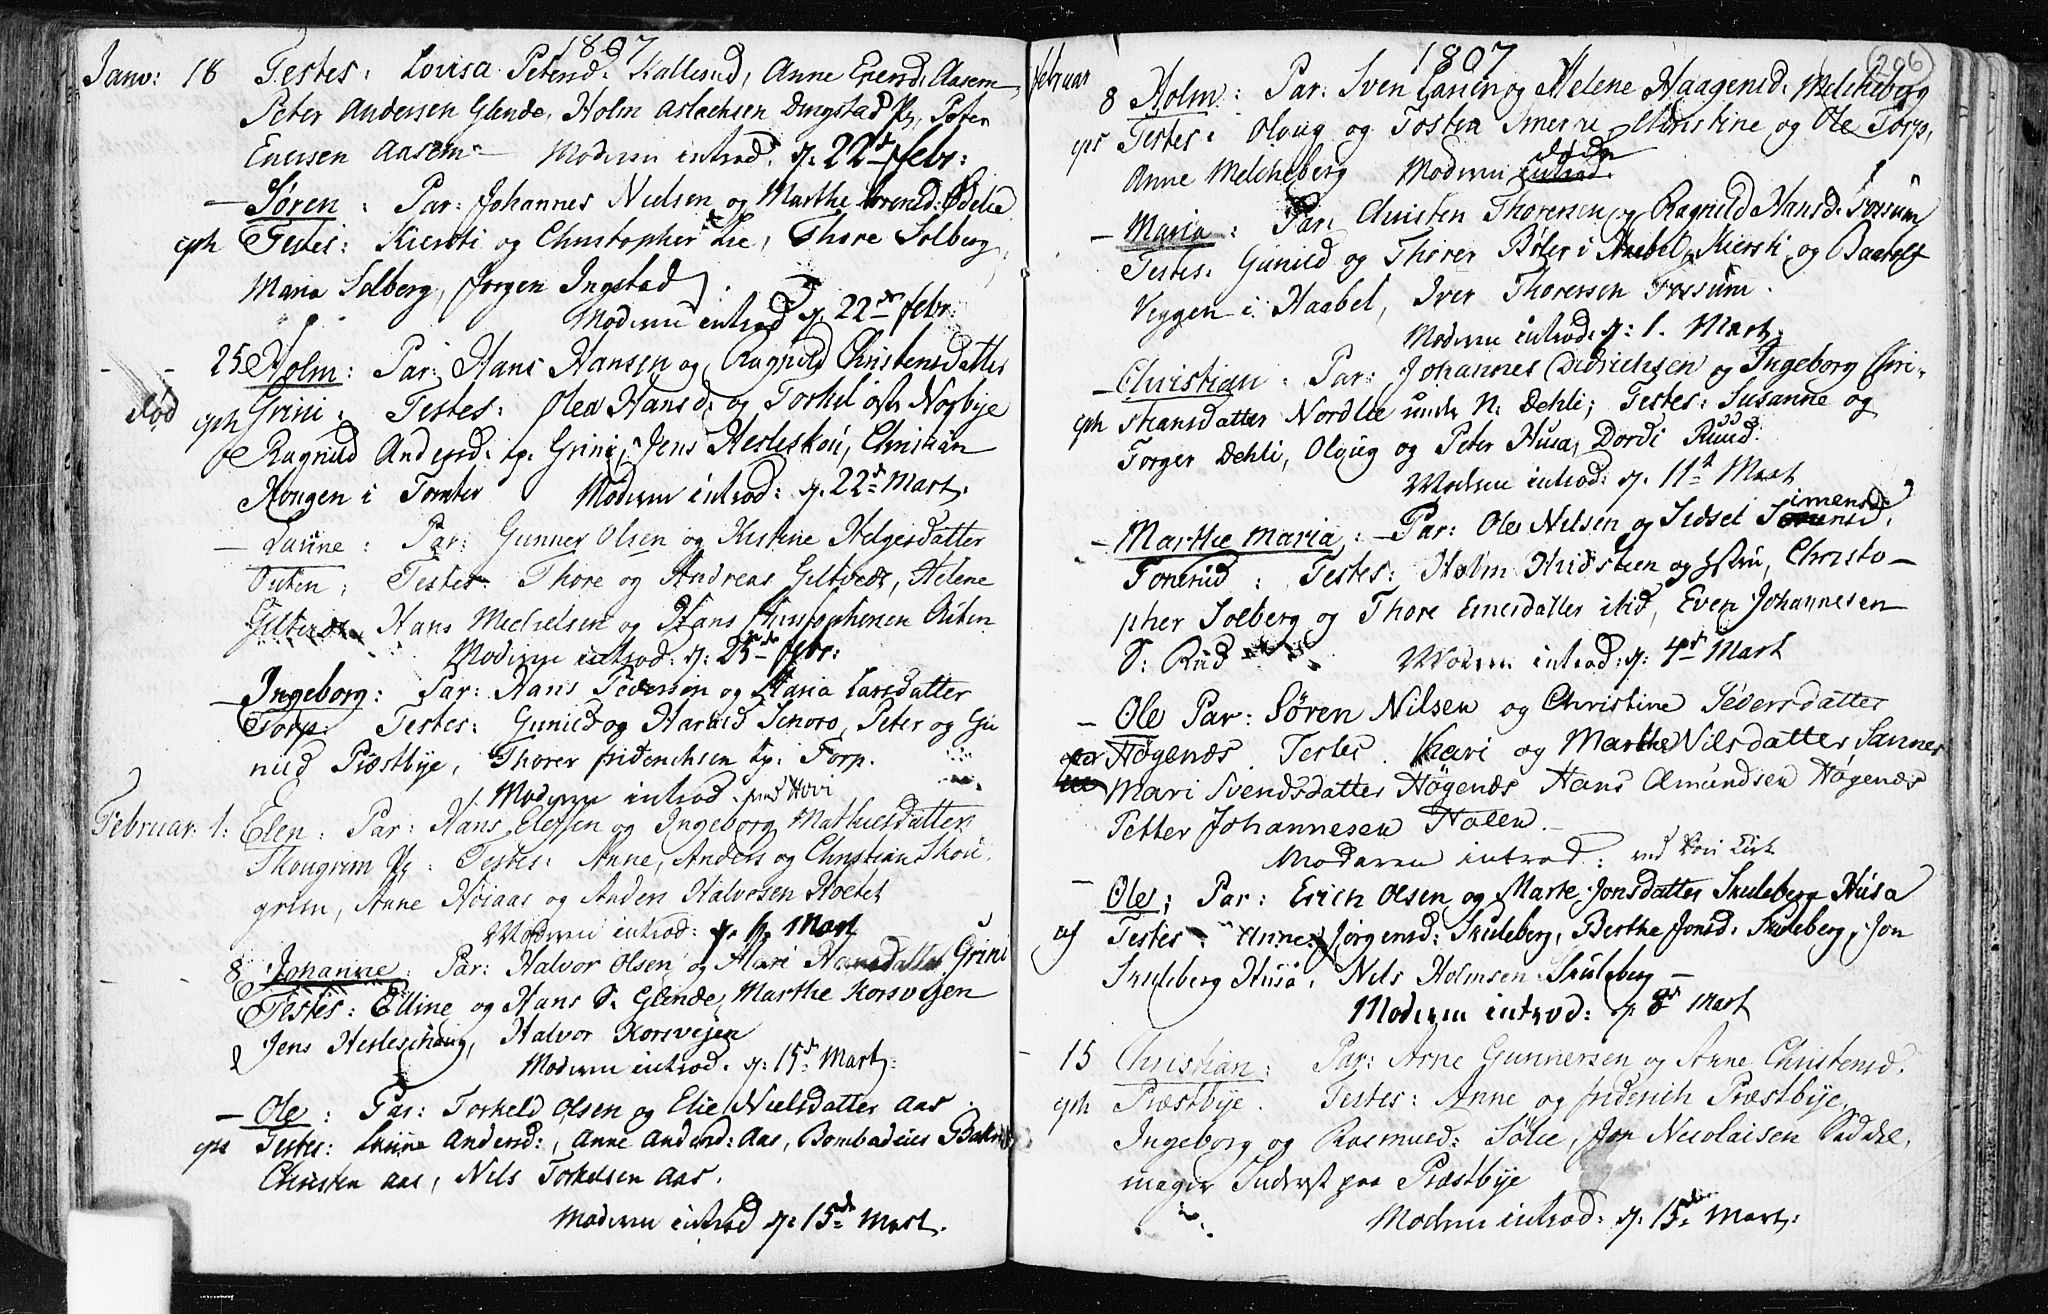 1807
Janv: 18 Testes: Lovisa Petersd: Kallerud, Anne Eversd: Aasem
Peter Andersen Glende, Holm Aslachsen Dingstad Pl, Peter
Eversen Aasem – Moderen introd. d: 22de febr:
– Søren : Par: Johannes Nielsen og Marthe Odelie
cph Testes: Kiersti og Christopher Lie, Thore Solberg,
Maria Solberg, Jørgen Ingstad
Moderen introd d: 22de febr:
– – 25 Holm: Par: Hans Hansen og Ragnild Christensdatter
død cph Grini; Testes: Olea Hansd: og Torkel østr Nøgbye
Ragnild Andersd: Grini, Jens Hesleskou, Christian
Kongen i Tomter Moderen introd: d: 22de Mart:
– Laurine : Par: Gunner Olsen og Kirstine Helgesdatter
Outen ; Testes: Thore og Andreas Giltvedt, Helene
Giltvedt, Hans Michelsen og Hans Christophersen Outen
Moderen introd: d: 25de febr:
– Ingeborg: Par: Hans Pedersen og Maria Larsdatter
Torp: Testes: Gunild og Harald Senoro, Peter og Gu
nild Præstbye, Thorer friderichsen Torp.
Moderen introd. ved Hovi
Februar: 1: Elen: Par: Hans Elefsen og Ingeborg Mathiesdatter
Skougrim Pl: Testes: Anne, Anders og Christian Skou
grim, Anne Høiaas og Anders Halvorsen Hoetet
Moderen introd: d. Mart
– – 8 Johanne: Par: Halvor Olsen og Mari Hansdatter Grini
Testes: Elline og Hans S. Glende, Marthe Korsvejen
Jens Hesleschoug, Halvor Korsvejen
Moderen introd. d: 15de Mart:
– Ole : Par: Torkeld Olsen og Elie Nielsdatter Aas
cph Testes: Andersd:, Anne Andersd: Aas, Bombadeur
Christen Aas, Nils Torkelsen Aas.
Moderen introd d: 15de Mart.
1807 (206)
februar 8 Holm: Par: Sven Larsen og Helene Haagensd: Melcheberg
cph Testes: Oloug og Tosten Smerre Christine og Ole Torp,
Anne Melcheberg Moderen introd.
– Maria : Par: Christen Thorersen og Ragnild Hansd: Fossum
Testes: Gunild og Thorer Bøler i Haabel, Kiersti og Baarolf
Veggen i Haabel, Iver Thoresen Fossum.
Moderen introd. d: 1. Mart:
– Christian : Par: Johannes Didrichsen og Ingeborg Chri-
cph stiansdatter Nordlie under N: Dehli; Testes: Susanne og
Torger Dehli, Oloug og Peter Husa, Dordi Ruud.
Moderen introd: d. 11te Mart
– Marthe Maria : Par: Ole Nilsen og Sidsel Simensd:
Tonerud : Testes: Holm Hvidsteen og Christo –
pher Solberg og Thore Einersdatter itid, Even Johannesen
S: Rud Moderen introd: d: 4de Mart
– Ole Par: Søren Nilsen og Christine Pedersdatter
Høgenæs. Testes. Kari og Marthe Nilsdatter Sannes
Mari Svendsdatter Høgenæs Hans Amundsen Høgenæs
Petter Johannesen Holen –
Moderen introd: ved Kirk
– Ole ; Par: Erich Olsen og Marte Jonsdatter Skuleberg Husa
Testes: Anne Jörgensd: Skuleberg, Berthe Jonsd: Skuleberg, Jon
Skuleberg Husa, Nels Holmsen Skuleberg –
Moderen introd: d 8de Mart
– 15 Christian: Par: Arne Gunnersen og Anne Christensd.
cph Præstbye. Testes: Anne og friderich Præstbye,
Ingeborg og Rasmusd: Sølie, Jon Nicolaisen Saddel
mager Inderst paa Præstbye
Moderen introd: d. 15de Mart: